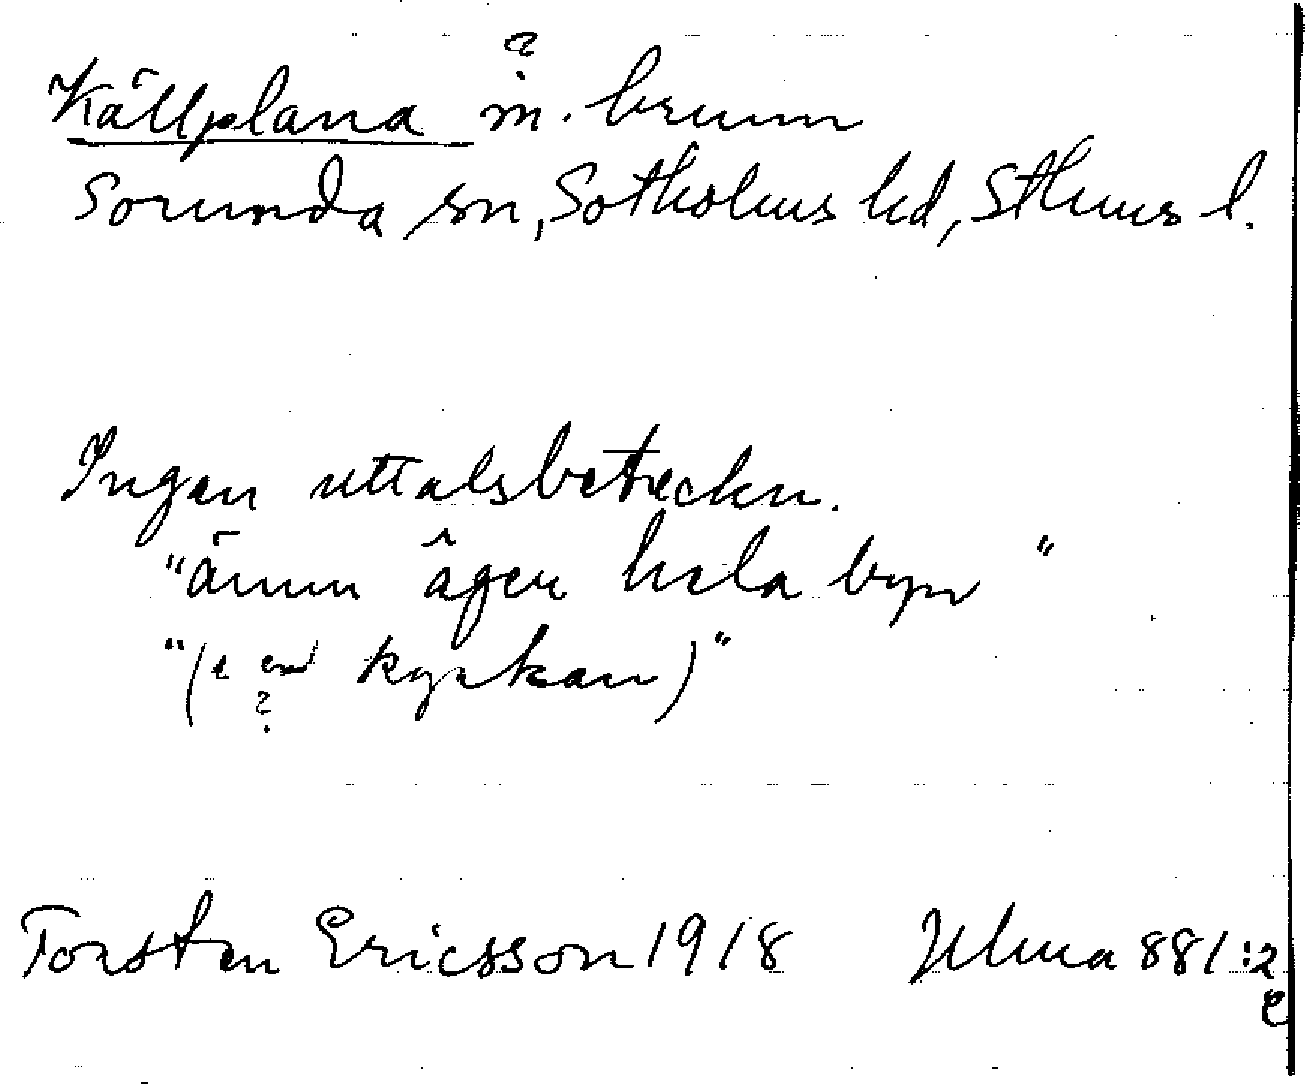 ?
Källplana m. brunn
Sorunda sn, Sotholms hd, Sthms l.
Ingen uttalsbeteckn.
"ännu äger hela byn"
"( kyrkan)"
?
Torsten Ericsson 1918 Ulma 881:2
e